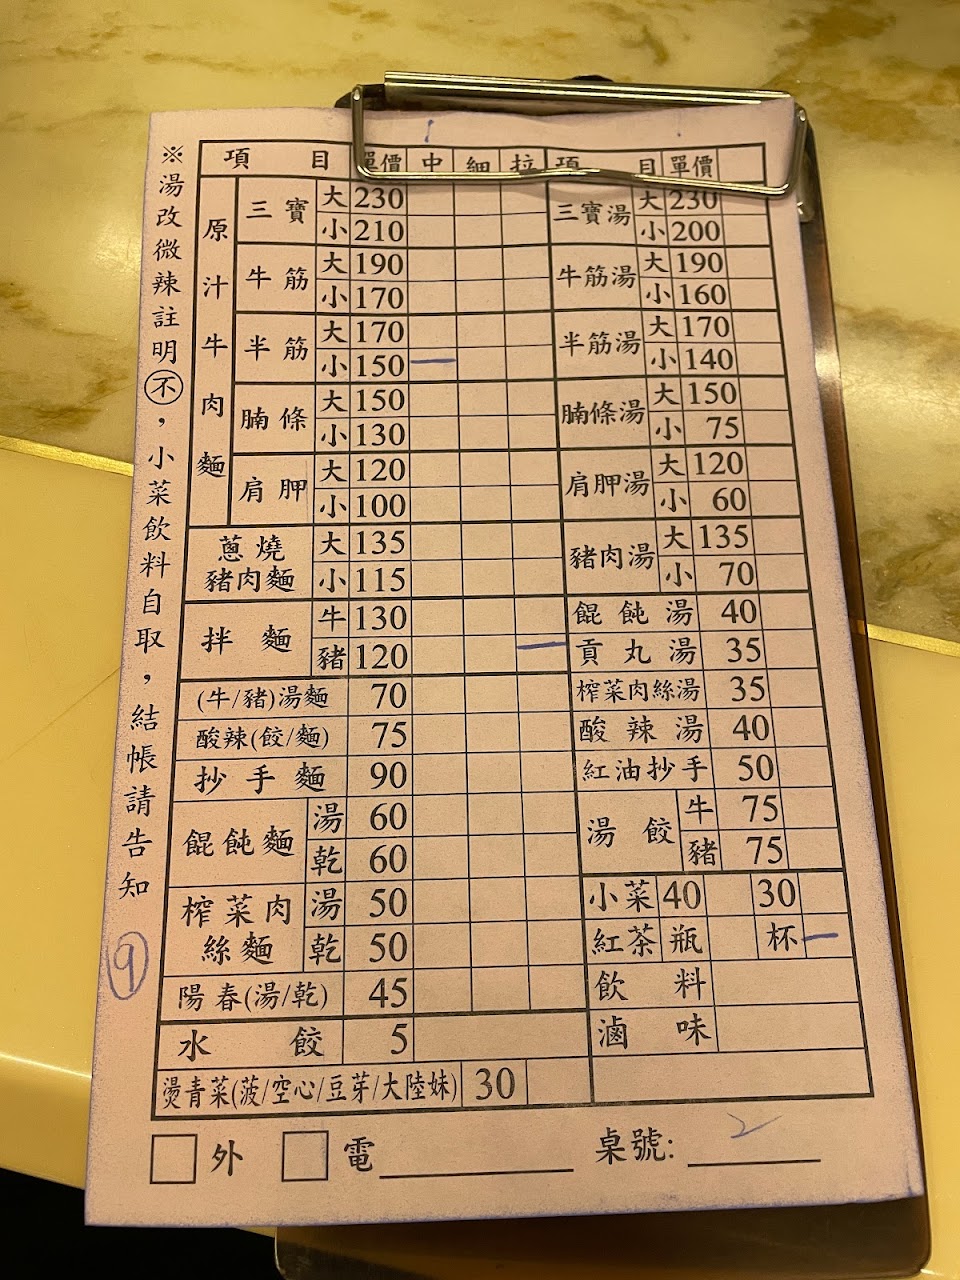 ※湯改微辣註明不，小菜飲料自取，結帳請告知
9
項 目 單價 中 細 拉 項 目 單價
原汁牛肉麵
三寶 大 230 三寶湯 大 230
小 210 小 200
牛筋 大 190 牛筋湯 大 190
小 170 小 160
半筋 大 170 半筋湯 大 170
小 150 一 小 140
腩條 大 150 腩條湯 大 150
小 130 小 75
肩胛 大 120 肩胛湯 大 120
小 100 小 60
蔥燒豬肉麵 大 135 豬肉湯 大 135
小 115 小 70
拌麵 牛 130 餛飩湯 40
豬 120 一 貢丸湯 35
(牛/豬)湯麵 70 榨菜肉絲湯 35
酸辣(餃/麵) 75 酸辣湯 40
抄手麵 90 紅油抄手 50
餛飩麵 湯 60 湯餃 牛 75
乾 60 豬 75
榨菜肉絲麵 湯 50 小菜 40 30
乾 50 紅茶 瓶 杯 一
陽春(湯/乾) 45 飲料
水餃 5 滷味
燙青菜(菠/空心/豆芽/大陸妹) 30
外 電 桌號: 2